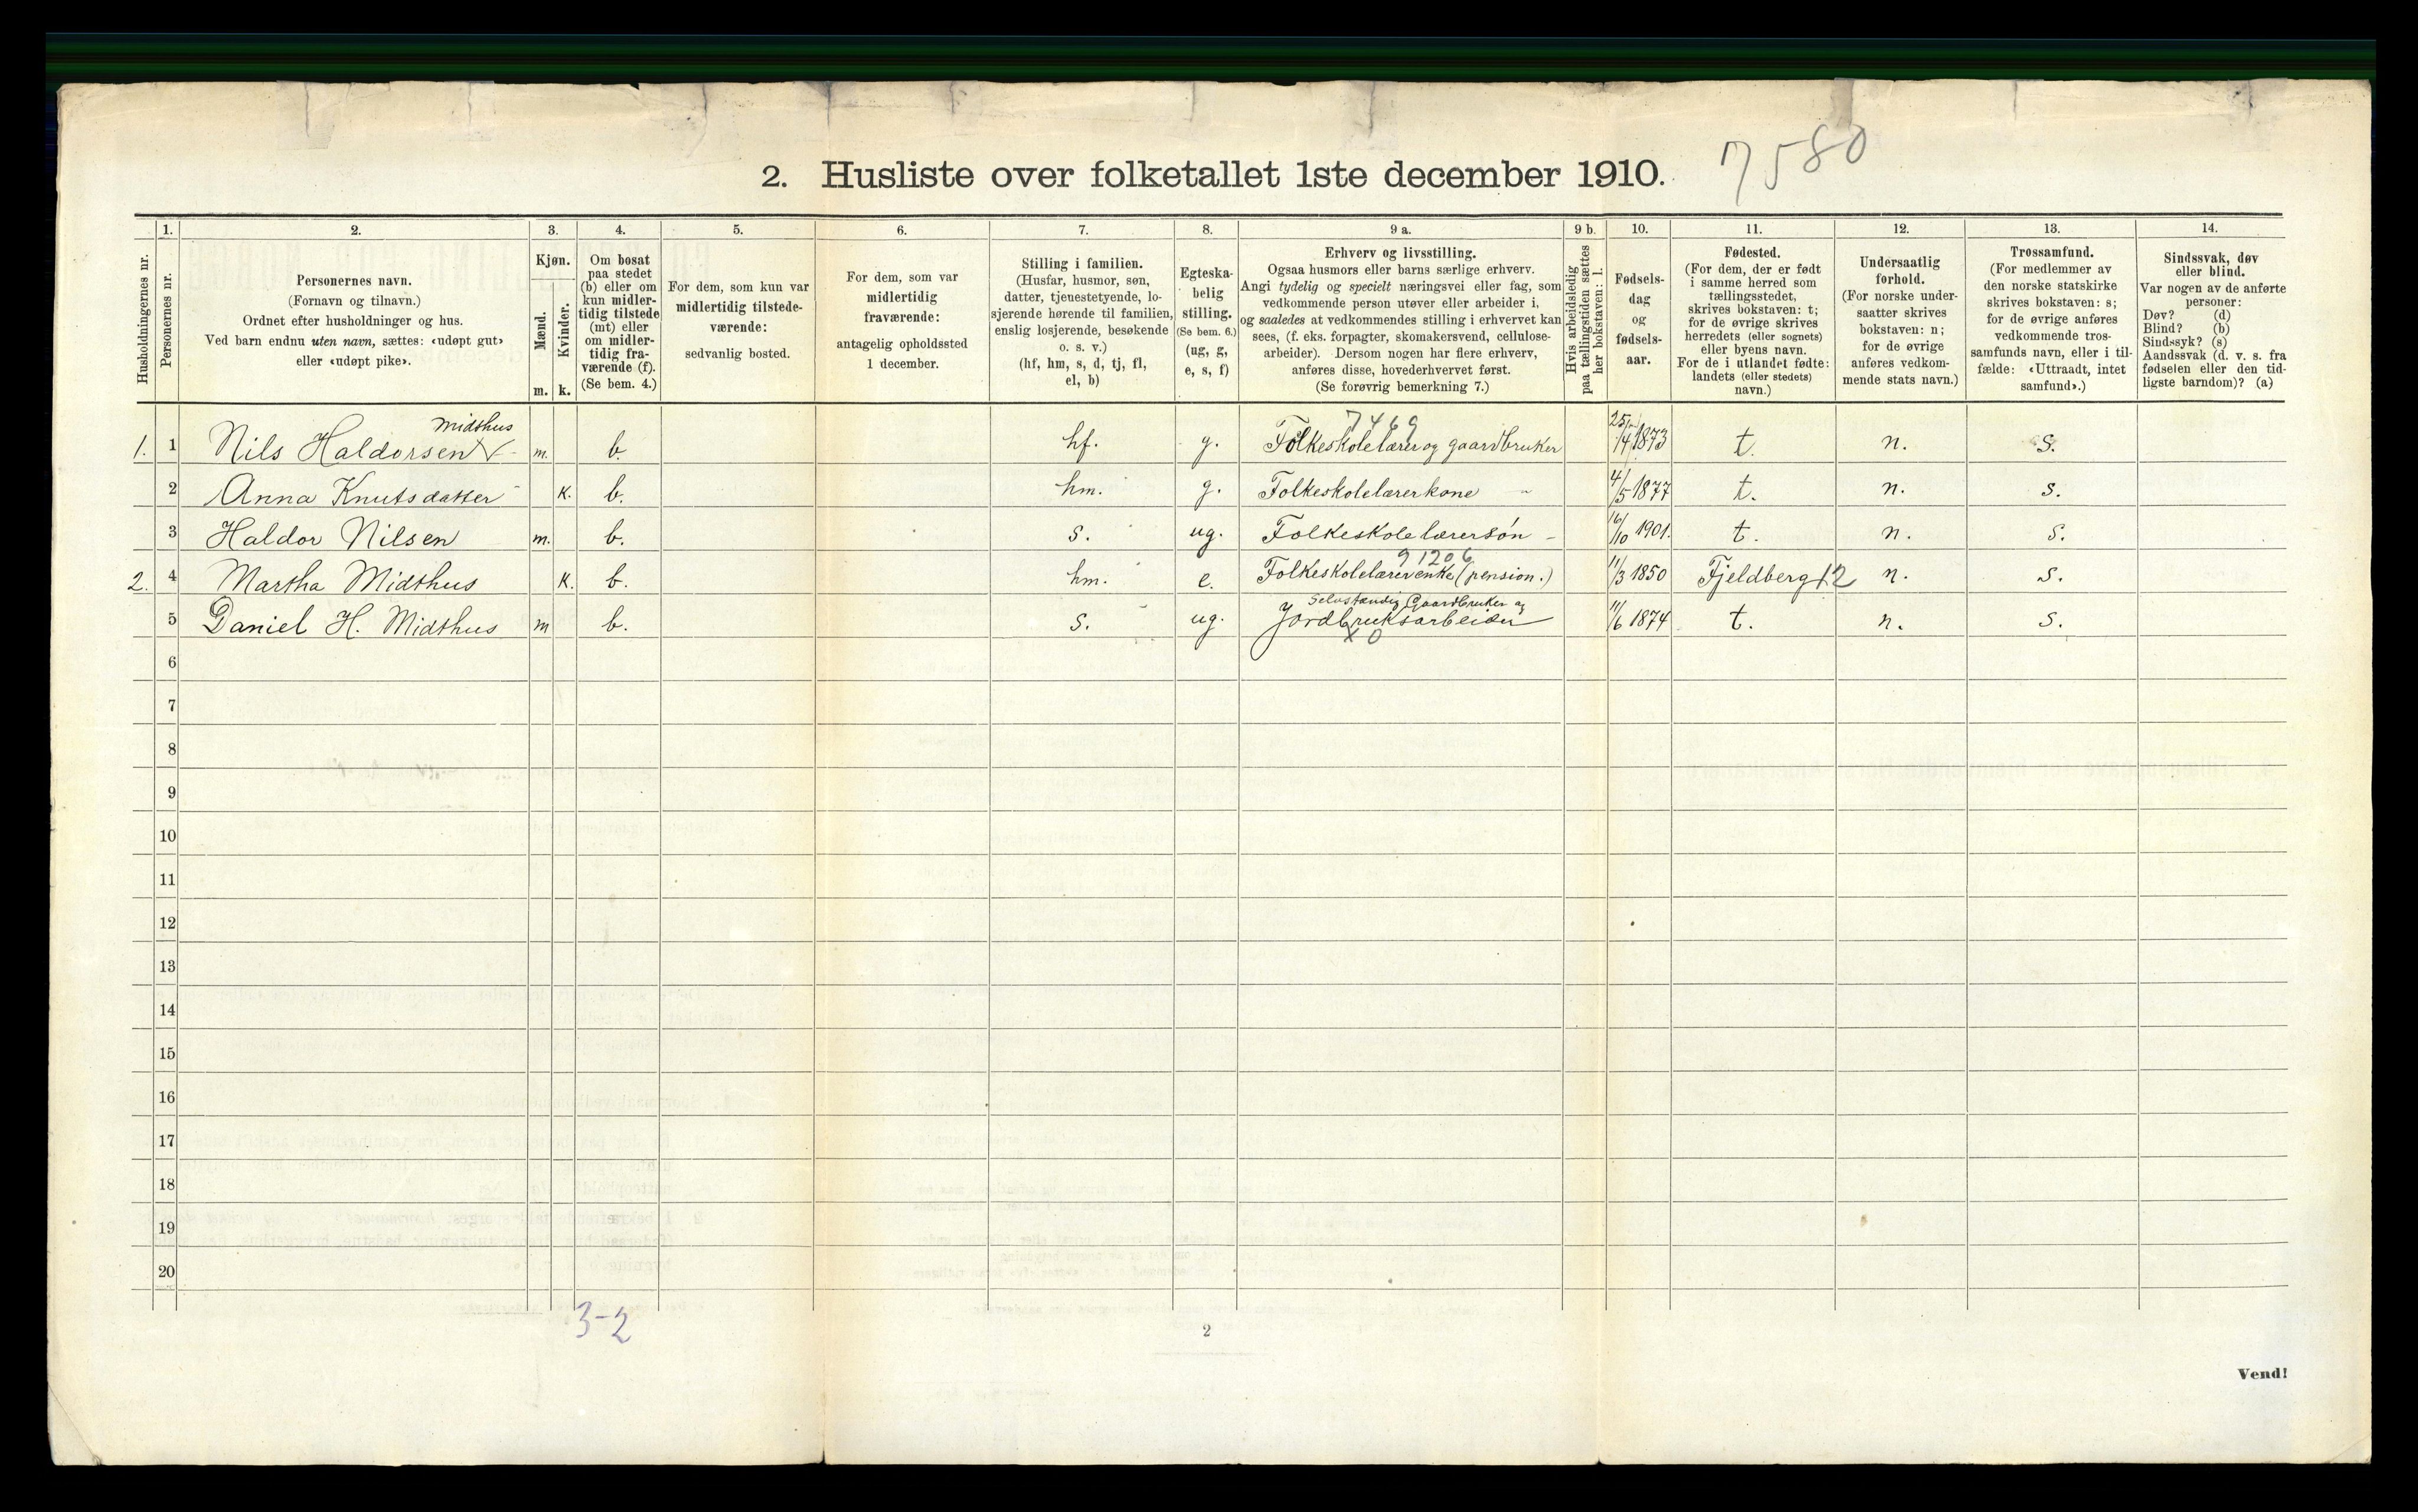 7580
2. Husliste over folketallet 1ste december 1910.
Husholdningernes nr.
1.
Personernes nr.
2.
Personernes navn.
(Fornavn og tilnavn.)
Ordnet efter husholdninger og hus.
Ved barn endnu uten navn, sættes: «udøpt gut»
eller «udøpt pike».
3.
Kjøn.
Mænd.
Kvinder.
m. k.
4.
Om bosat
paa stedet
(b) eller om
kun midler-
tidig tilstede
(mt) eller
om midler-
tidig fra-
værende (f).
(Se bem. 4.)
5.
For dem, som kun var
midlertidig tilstede-
værende:
sedvanlig bosted.
6.
For dem, som var
midlertidig
fraværende:
antagelig opholdssted
1 december.
7.
Stilling i familien.
(Husfar, husmor, søn,
datter, tjenestetyende, lo-
sjerende hørende til familien,
enslig losjerende, besøkende
o. s. v.)
(hf, hm, s, d, tj, fl,
el, b)
8.
Egteska-
belig
stilling.
(Se bem. 6.)
(ug, g,
e, s, f)
9 a.
Erhverv og livsstilling.
Ogsaa husmors eller barns særlige erhverv.
Angi tydelig og specielt næringsvei eller fag, som
vedkommende person utøver eller arbeider i,
og saaledes at vedkommendes stilling i erhvervet kan
sees, (f. eks. forpagter, skomakersvend, cellulose-
arbeider). Dersom nogen har flere erhverv,
anføres disse, hovederhvervet først.
(Se forøvrig bemerkning 7.)
9 b.
Hvis arbeidsledig
paa tællingstiden sættes
her bokstaven: l.
10.
Fødsels-
dag
og
fødsels-
aar.
11.
Fødested.
(For dem, der er født
i samme herred som
tællingsstedet,
skrives bokstaven: t;
for de øvrige skrives
herredets (eller sognets)
eller byens navn.
For de i utlandet fødte:
landets (eller stedets)
navn.)
12.
Undersaatlig
forhold.
(For norske under-
saatter skrives
bokstaven: n;
for de øvrige
anføres vedkom-
mende stats navn.)
13.
Trossamfund.
(For medlemmer av
den norske statskirke
skrives bokstaven: s;
for de øvrige anføres
vedkommende tros-
samfunds navn, eller i til-
fælde: «Uttraadt, intet
samfund».)
14.
Sindssvak, døv
eller blind.
Var nogen av de anførte
personer:
Døv? (d)
Blind? (b)
Sindssyk? (s)
Aandssvak (d. v. s. fra
fødselen eller den tid-
ligste barndom)? (a)
Midthus 7469
1. 1 Nils Haldorsen m. b. hf. g. Folkeskolelærer og gaardbruker 25/4 1873 t. n. s.
2 Anna Knutsdatter k. b. hm. g. Folkeskolelærerkone 4/5 1877 t. n. s.
3 Haldor Nilsen m. b. s. ug. Folkeskolelærersøn 16/10 1901. t. n. s.
91206
2. 4 Martha Midthus k. b. hm. e. Folkeskolelærerenke (pension.) 11/3 1850 Fjeldberg 12 n. s.
Selvstændig Gaardbruker og
5 Daniel H. Midthus m b. s. ug. Jordbruksarbeider 11/6 1874 t. n. s.
x 0
6
7
8
9
10
11
12
13
14
15
16
17
18
19
20
3-2
2
Vend!